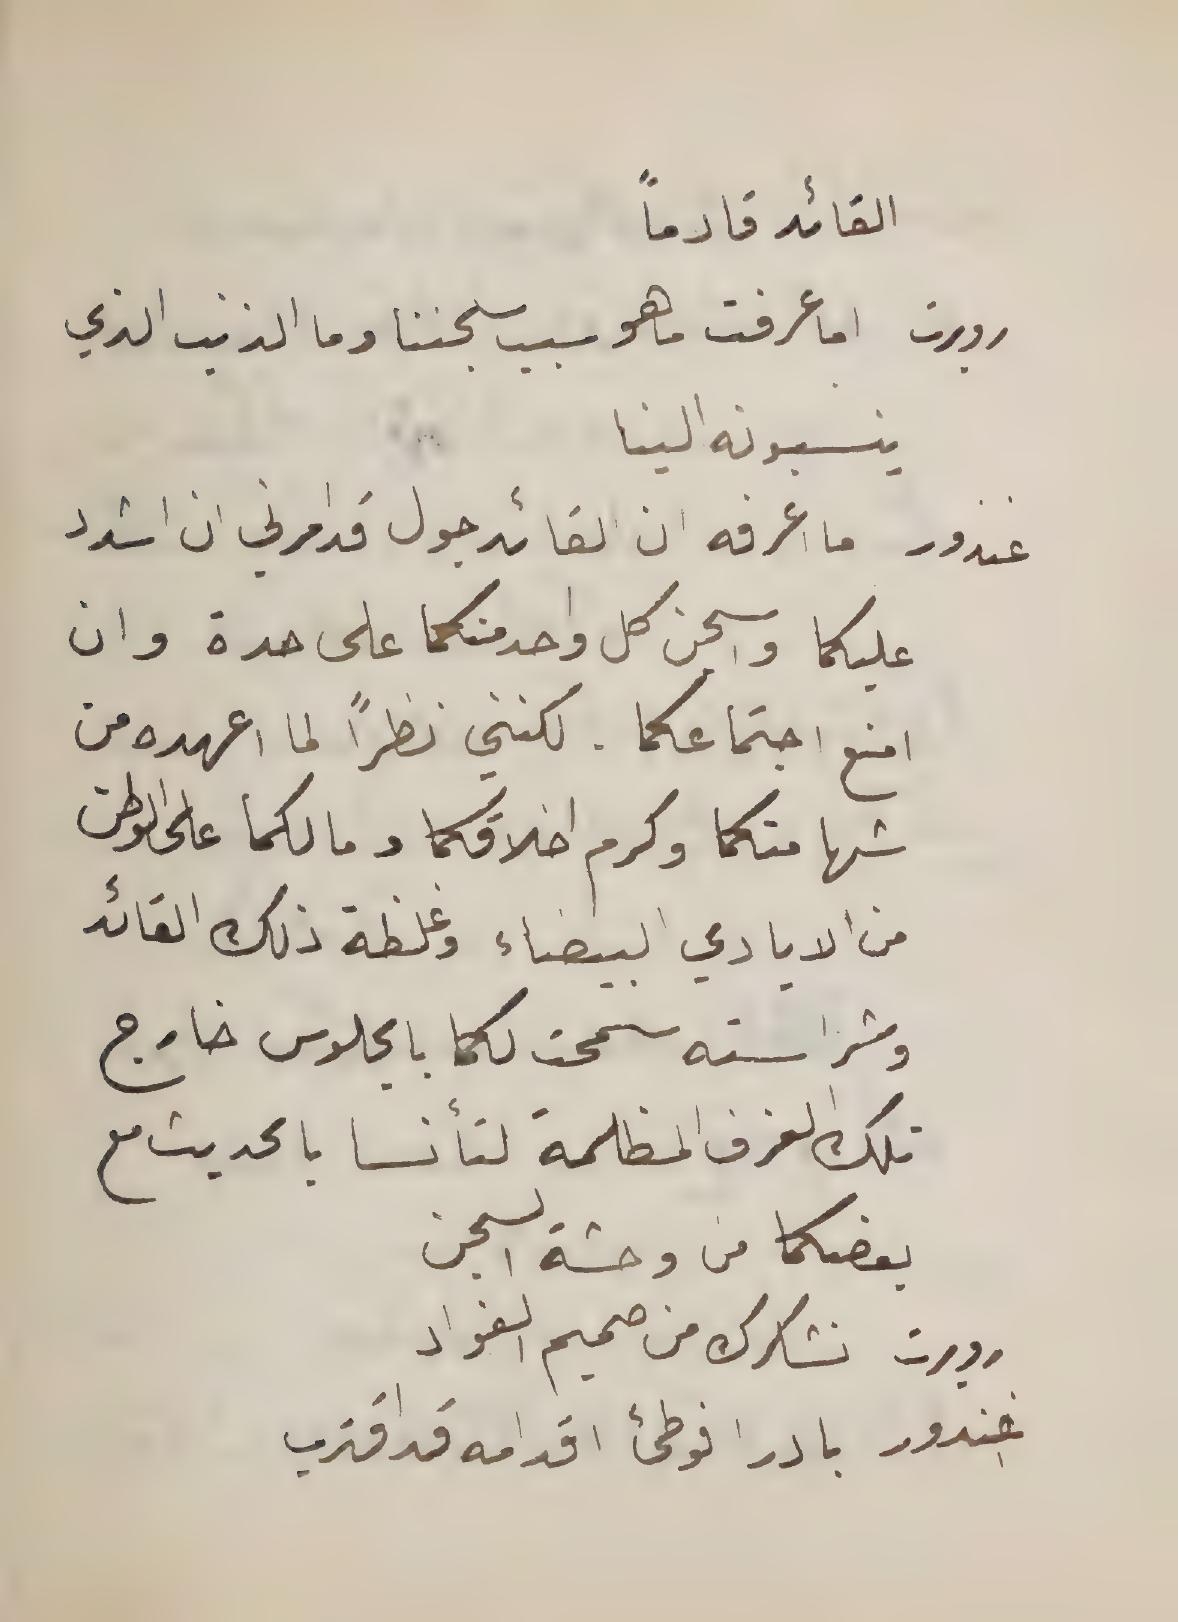 القائد قادماً
روبرت اما عرفت ما هو سبب سجننا وما الذنب الذي
ينسبونه الينا
غندور ما اعرفه ان القائد جول قد امرني ان اشدد
عليكما واسجن كل واحد منكما على حدة وان
امنع اجتماعكما . لكنني نظراً لما اعهده من
شهامتكما وكرم اخلاقكما وما لكما على الوطن
من الايادي البيضاء وغلظة ذلك القائد
وشراسته سمحت لكما بالجلوس خارج
تلك الغرف المظلمة لتأنسا بالحديث مع
بعضكما من وحشة السجن
روبرت نشكرك من صميم الفواد
غندور بادرا فوطئ اقدامه قد اقترب